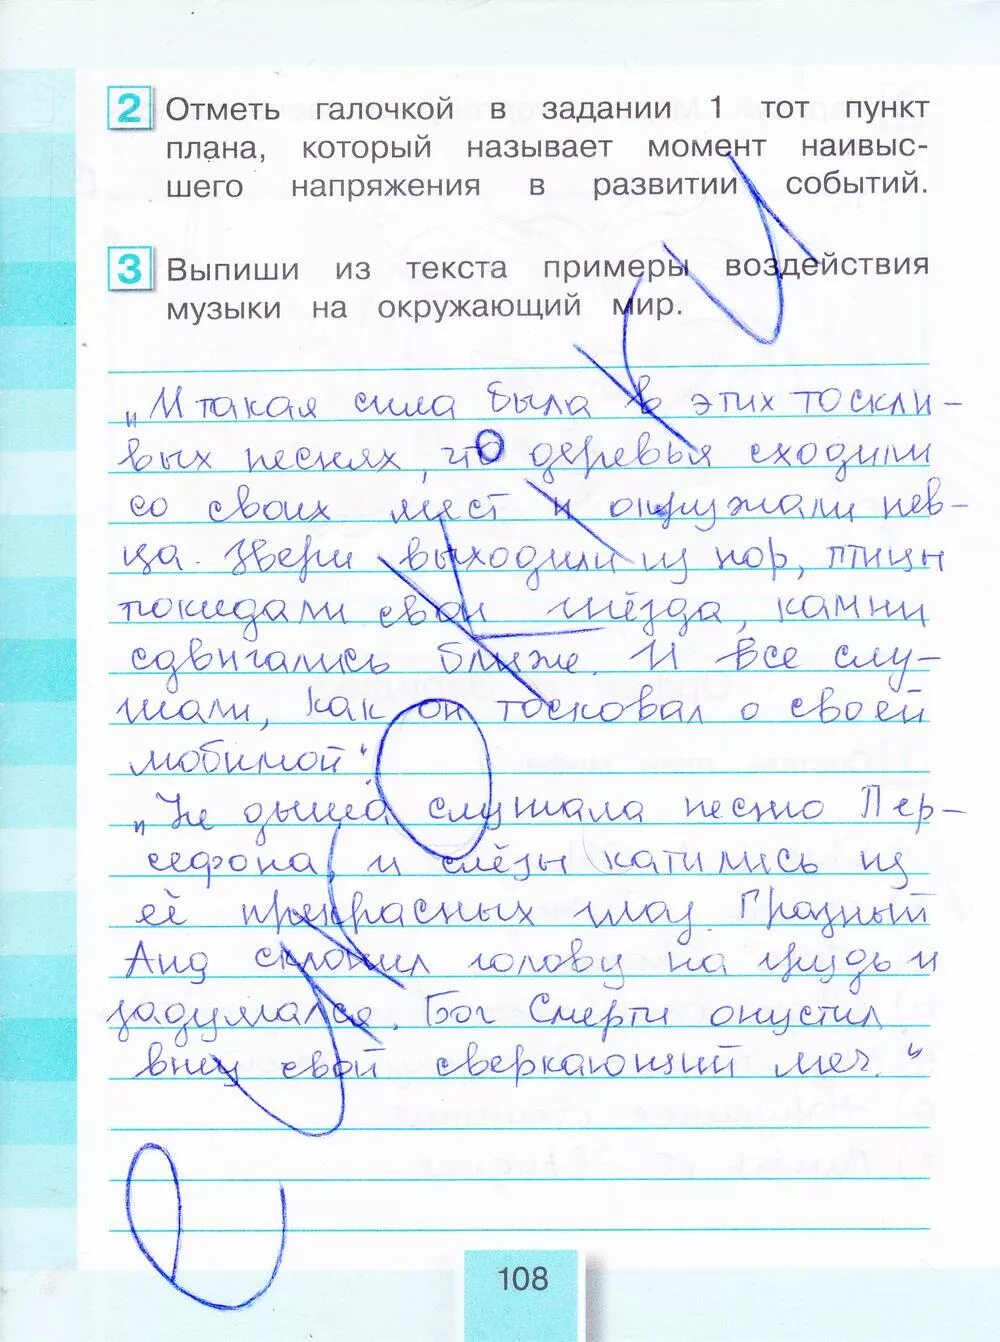 2 Отметь галочкой в задании 1 тот пункт
плана, который называет момент наивыс-
шего напряжения в развитии событий.
3 Выпиши из текста примеры воздействия
музыки на окружающий мир.
„И такая сила была в этих тоскли-
вых песнях, что деревья сходили
со своих мест и окружали пев-
ца. Звери выходили из нор, птицы
покидали свои гнёзда, камни
сдвигались ближе. И все слу-
шали, как он тосковал о своей
любимой“.
„Не дыша слушала песню Пер-
сефона, и слёзы катились из
её прекрасных глаз. Грозный
Аид склонил голову на грудь и
задумался. Бог Смерти опустил
вниз свой сверкающий меч.“
108